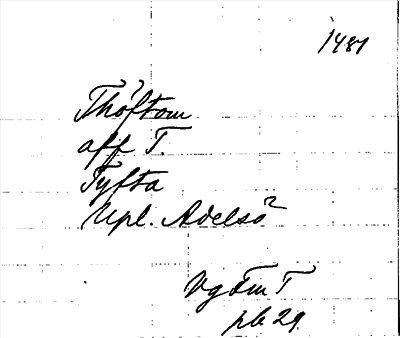 1481
Thöftom
aff T.
Tyfta
Upl. Adelsö
Vg Fru T
pb 29